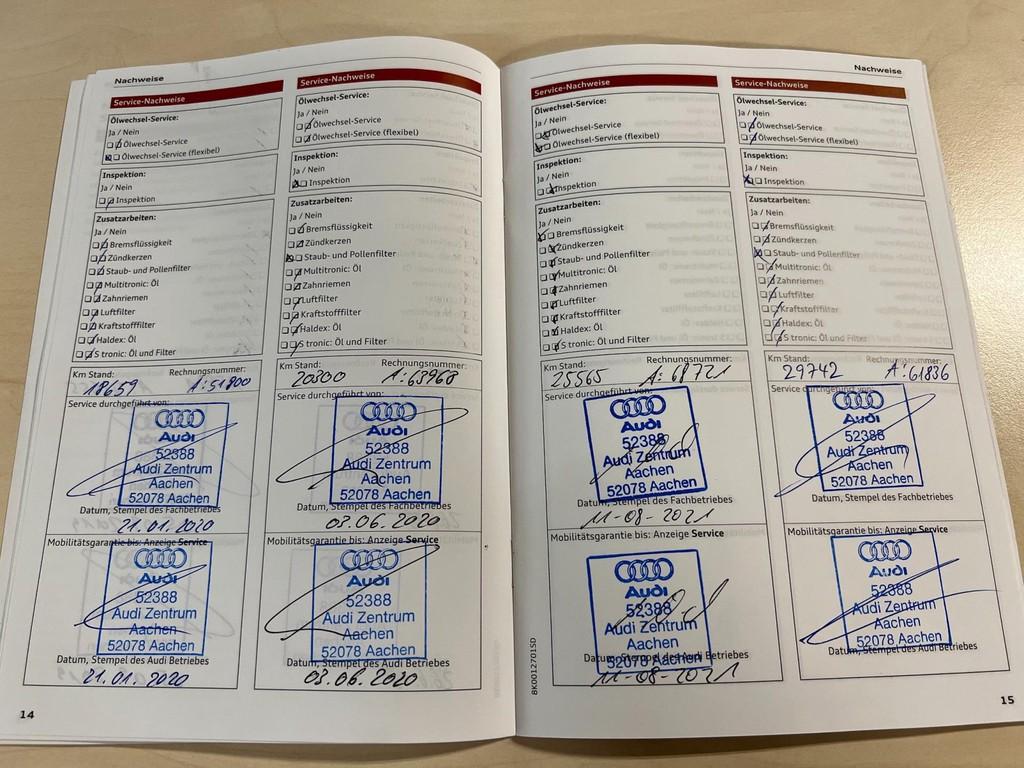 Nachweise
Service-Nachweise
Ölwechsel-Service:
Ja / Nein
Ölwechsel-Service
Ölwechsel-Service (flexibel)
Inspektion:
Ja / Nein
Inspektion
Zusatzarbeiten:
Ja / Nein
Bremsflüssigkeit
Zündkerzen
Staub- und Pollenfilter
Multitronic: Öl
Zahnriemen
Luftfilter
Kraftstofffilter
Haldex: Öl
S tronic: Öl und Filter
Km Stand: Rechnungsnummer:
18659 A:51800
Service durchgeführt von:
Audi
52388
Audi Zentrum
Aachen
52078 Aachen
Datum, Stempel des Fachbetriebes
21.01.2020
Mobilitätsgarantie bis: Anzeige Service
Audi
52388
Audi Zentrum
Aachen
52078 Aachen
Datum, Stempel des Audi Betriebes
21.01.2020
14
Service-Nachweise
Ölwechsel-Service:
Ja / Nein
Ölwechsel-Service
Ölwechsel-Service (flexibel)
Inspektion:
Ja / Nein
Inspektion
Zusatzarbeiten:
Ja / Nein
Bremsflüssigkeit
Zündkerzen
Staub- und Pollenfilter
Multitronic: Öl
Zahnriemen
Luftfilter
Kraftstofffilter
Haldex: Öl
S tronic: Öl und Filter
Km Stand: Rechnungsnummer:
20300 A:63968
Service durchgeführt von:
Audi
52388
Audi Zentrum
Aachen
52078 Aachen
Datum, Stempel des Fachbetriebes
03.06.2020
Mobilitätsgarantie bis: Anzeige Service
Audi
52388
Audi Zentrum
Aachen
52078 Aachen
Datum, Stempel des Audi Betriebes
03.06.2020
Nachweise
Service-Nachweise
Ölwechsel-Service:
Ja / Nein
Ölwechsel-Service
Ölwechsel-Service (flexibel)
Inspektion:
Ja / Nein
Inspektion
Zusatzarbeiten:
Ja / Nein
Bremsflüssigkeit
Zündkerzen
Staub- und Pollenfilter
Multitronic: Öl
Zahnriemen
Luftfilter
Kraftstofffilter
Haldex: Öl
S tronic: Öl und Filter
Km Stand: Rechnungsnummer:
25565 A:68721
Service durchgeführt von:
Audi
52388
Audi Zentrum
Aachen
52078 Aachen
Datum, Stempel des Fachbetriebes
11-08-2021
Mobilitätsgarantie bis: Anzeige Service
Audi
52388
Audi Zentrum
Aachen
52078 Aachen
Datum, Stempel des Audi Betriebes
11-08-2021
8K0012701SD
Service-Nachweise
Ölwechsel-Service:
Ja / Nein
Ölwechsel-Service
Ölwechsel-Service (flexibel)
Inspektion:
Ja / Nein
Inspektion
Zusatzarbeiten:
Ja / Nein
Bremsflüssigkeit
Zündkerzen
Staub- und Pollenfilter
Multitronic: Öl
Zahnriemen
Luftfilter
Kraftstofffilter
Haldex: Öl
S tronic: Öl und Filter
Km Stand: Rechnungsnummer:
29742 A:61836
Service durchgeführt von:
Audi
52388
Audi Zentrum
Aachen
52078 Aachen
Datum, Stempel des Fachbetriebes
Mobilitätsgarantie bis: Anzeige Service
Audi
52388
Audi Zentrum
Aachen
52078 Aachen
Datum, Stempel des Audi Betriebes
15